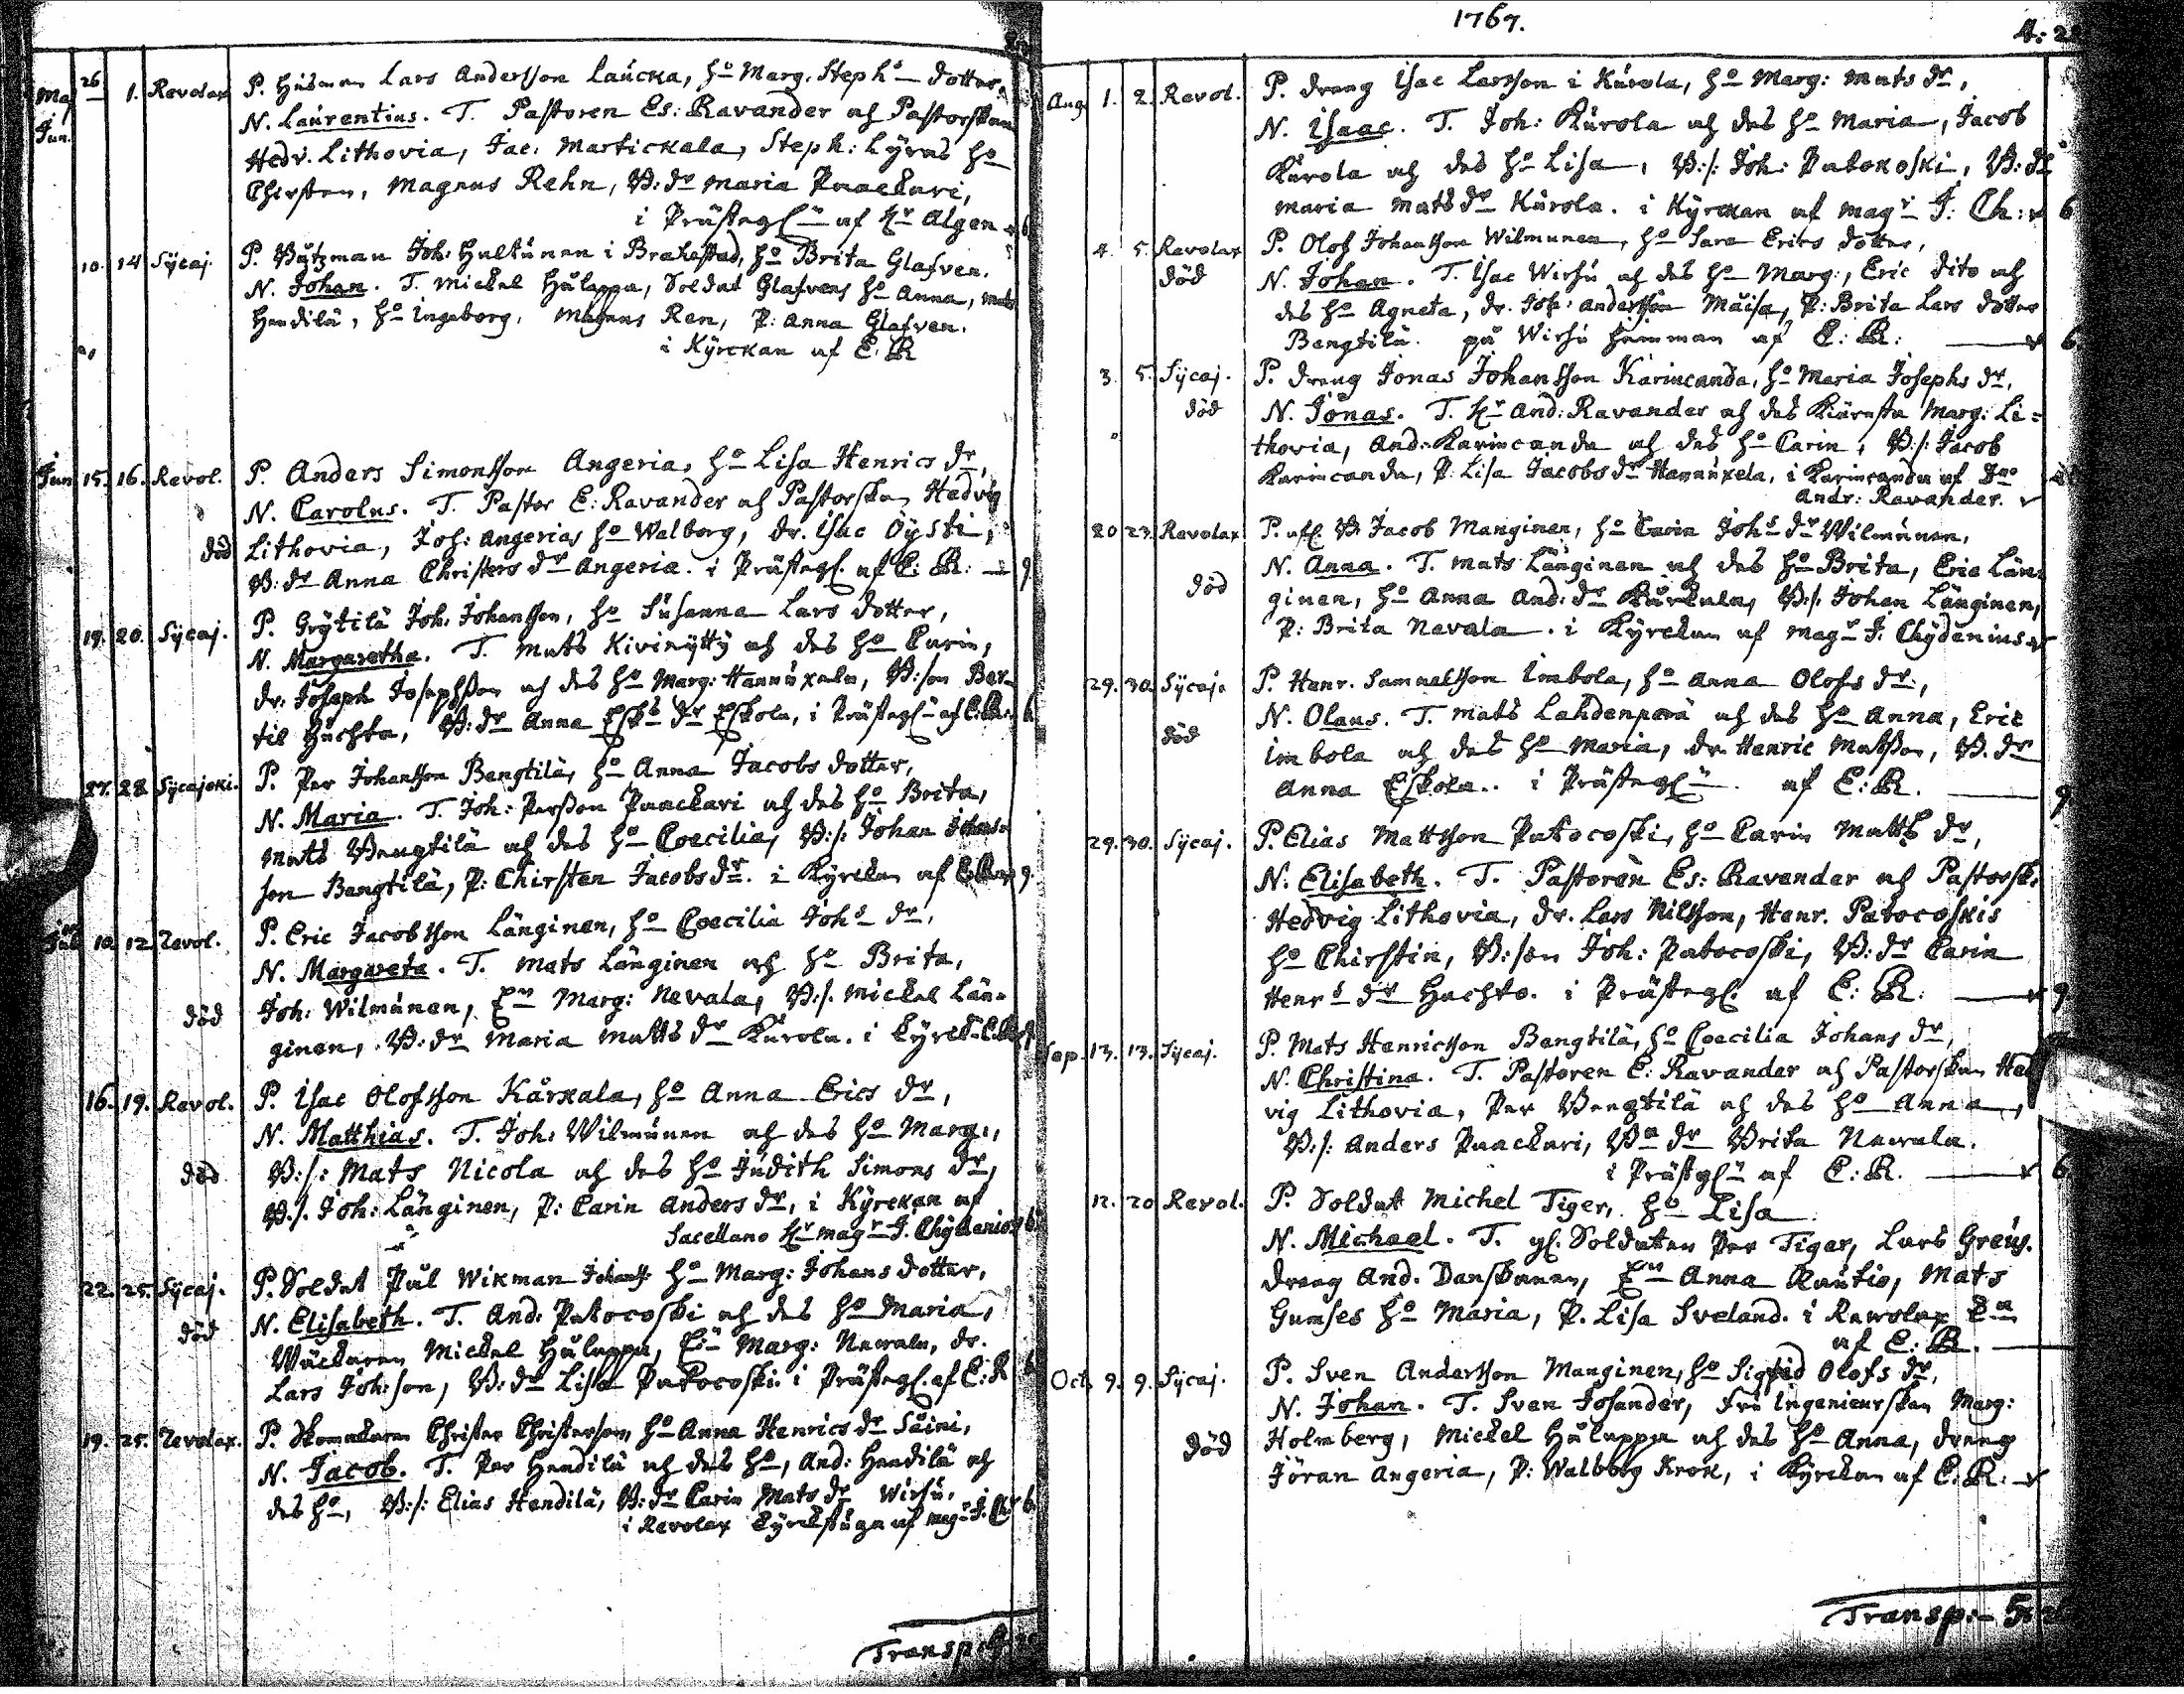 Maj 26 1. Revolax P. Husman Lars Andersson Laucka, ho Marg. Stephs dotter,
Jun. N. Laurentius. T. Pastoren Es: Ravander och Pastorskan
Hedv. Lithovia, Jac. Martickala, Steph: Lyras ho
Chirsten, Magnus Rehn, P: dr Maria Paackari,
i Prästegln af Hr Algen 6
10. 14 Sijcaj. P. Båtzman Joh: Hultunen i Brahestad, ho Brita Glafven.
N. Johan. T. Mickel Huluppa, Soldat Glafvens ho Anna, Mats
Hendilä, ho Ingeborg, Magnus Ren, P: Anna Glafven.
i Kyrckan af E: R
Jun 15. 16. Revol. P. Anders Simonsson Angeria, ho Lisa Henrics dr,
N. Carolus. T. Pastor E: Ravander och Pastorskan Hedvig
död Lithovia, Joh: Angerias ho Walborg, dr. Isac Öysti,
P: dr Anna Christers dr Angeria. i Prästegl. af E: R: 9
19. 20. Sijcaj. P. Grytilä Joh. Johansson, ho Susanna Lars dotter,
N. Margaretha. T. Mats Kivirytty och des ho Carin,
dr. Joseph Josephsson och des ho Marg: Hannuxela, P:son Ber-
til Huchta, P: dr Anna Esks dr Eskola, i Prästegln af E: R: 6
27. 28 Sijcajoki. P. Per Johansson Bengtilä, ho Anna Jacobs dotter,
N. Maria. T. Joh: Persson Paackari och des ho Brita,
Mats Bengtilä och des ho Coecilia, P:s: Johan Johans-
son Bengtilä, P: Chirsten Jacobs dr. i Kyrckan af E: R: 9
Jul 10. 12. Revol. P. Eric Jacobsson Länginen, ho Coecilia Johs dr,
N. Margareta. T. Mats Länginen och ho Brita,
död Joh: Wilmunen, Marg: Nevala, P:s. Mickel Län-
ginen, P: dr Maria Matts dr Kurola. i Kyrck.
16. 19. Revol. P. Isac Olofsson Kårxala, ho Anna Erics dr,
N. Matthias. T. Joh: Wilmunen och des ho Marg:,
död P:s: Mats Nicola och des ho Judith Simons dr,
P:s. Joh: Länginen, P: Carin Anders dr, i Kyrckan af
Sacellano Hr magr J. Chydenio 6
22. 25. Sijcaj. P. Soldat Pål Wikman Johanss ho Marg: Johans dotter,
död N. Elisabeth. T. And: Patocoski och des ho Maria,
Mickel Huluppa, Marg: Nevala, dr.
Lars Joh:son, P: dr Lisa Patocoski i Prästegl. af E: R 6
19. 25. Revolax. P. Skomakaren Christer Christersson, ho Anna Henrics dr Saini,
N. Jacob. T. Per Hendilä och des ho, And: Hendilä och
des ho, P:s: Elias Hendilä, P: dr Carin Mats dr Wirsu,
i Revolax Kyrckstuga af magr J. Ch: 6
Transp.
1767.
Aug 1. 2. Revol. P. dreng Isac Larsson i Kurola, ho Marg: Mats dr,
N. Isaac. T. Joh: Kurola och des ho Maria, Jacob
Kurola och des ho Lisa, P:s: Joh: Patokoski, P: dr
Maria Mats dr Kurola. i Kyrckan af magr J: Ch: 6
4. 5. Revolax P. Olof Johansson Wilmunen, ho Sara Erics dotter,
död N. Johan. T. Isac Wirsu och des ho Marg:, Eric dito och
des ho Agneta, dr. Joh: Andersson Maisa, P: Brita Lars dotter
Bengtilä. på Wirsu hemman af E: R: 6
3. 5. Sijcaj. P. dreng Jonas Johansson Karincanda, ho Maria Josephs dr,
död N. Jonas. T. Hr And: Ravander och des Kiäresta Marg: Li=
thovia, And: Karincanda och des ho Carin, P:s: Jacob
Karincanda, P: Lisa Jacobs dr Hannuxela, i Karincanda af Dno
Andr: Ravander.
20 23. Revolax P. Jacob Manginen, ho Carin Johs dr Wilmunen,
N. Anna. T. Mats Länginen och des ho Brita, Eric Län-
död ginen, ho Anna And: dr Kårkala, P:s: Johan Länginen,
P: Brita Nevala. i Kyrckan af magr J. Chydenius
29. 30. Sijcaj. P. Henr. Samuelsson Imbola, ho Anna Olofs dr,
N. Olaus. T. Mats Lahdenperä och des ho Anna, Eric
död Imbola och des ho Maria, dr. Henric Matsson, P. dr
Anna Eskola. i Prästegln af E: R. 9
29. 30. Sijcaj. P. Elias Mattsson Patocoski, ho Carin Matts dr,
N. Elisabeth. T. Pastoren Es: Ravander och Pastorsk.
Hedvig Lithovia, dr. Lars Nilsson, Henr. Patocoskis
ho Chirstin, P:son Joh: Patocoski, P: dr Carin
Henrs dr Huchta. i Prästegl. af E: R: 9
Sep. 13. 13. Sijcaj. P. Mats Henricsson Bengtilä, ho Coecilia Johans dr,
N. Christina. T. Pastoren E: Ravander och Pastorskan Hed
vig Lithovia, Per Bengtilä och des ho Anna,
P:s: Anders Paackari, dr Brita Nevala.
i Prästgln af E: R. 6
12. 20 Revol. P. Soldat Michel Tiger, ho Lisa
N. Michael. T. gl. Soldaten Per Tiger, Lars Greus.
dreng And. Danskanen, Anna Rautio, Mats
Gumses ho Maria, P. Lisa Sveland. i Revolax
af E: R.
Oct. 9. 9. Sijcaj. P. Sven Andersson Manginen, ho Sigfrid Olofs dr,
N. Johan. T. Sven Josander, Fru Ingenieurskan Marg:
död Holmberg, Mickel Huluppa och des ho Anna, dreng
Jöran Angeria, P: Walborg Krok, i Kyrckan af E: R:
Transp: